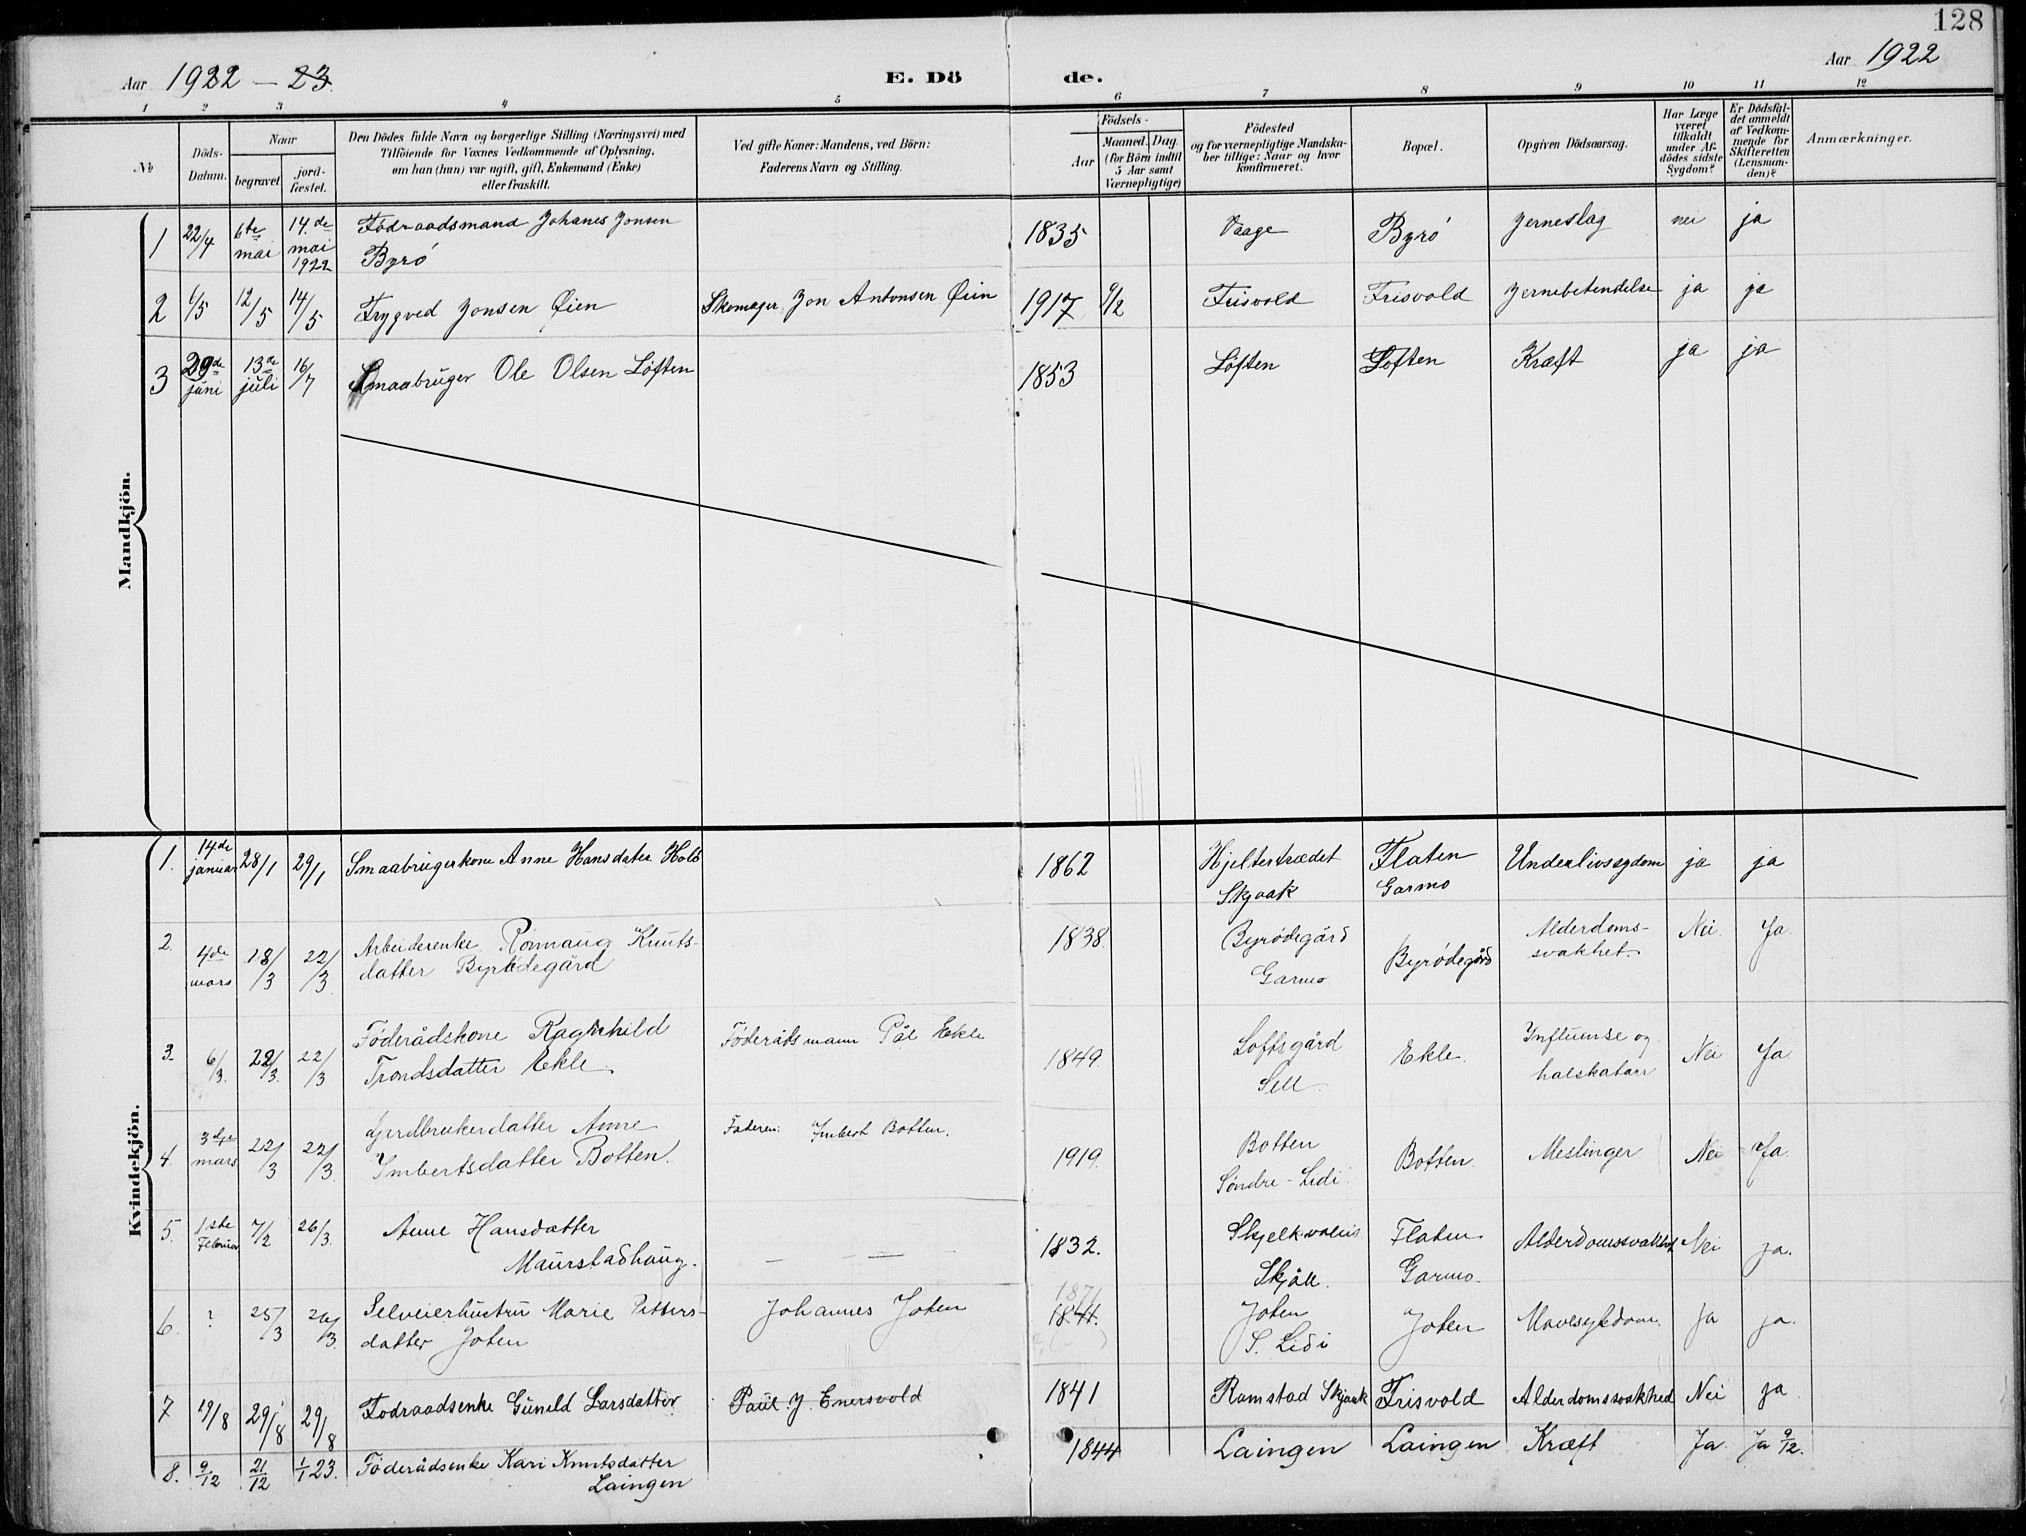 128
Aar 1922 - 23.
E. Dö de.
Aar 1922
1 2 3 4 5 6 7 8 9 10 11 12
No
Döds-
Datum.
Naar
begravet
jord-
fæstet.
Den Dödes fulde Navn og borgerlige Stilling (Næringsvei) med
Tilföiende for Voxnes Vedkommende af Oplysning,
om han (hun) var ugift, gift, Enkemand (Enke)
eller fraskilt.
Ved gifte Koner: Mandens, ved Börn:
Faderens Navn og Stilling.
Födsels-
Aar
Maaned. Dag.
(for Börn indtil
5 Aar samt
Værnepligtige)
Födested
og for værnepligtige Mandska-
ber tillige: Naar og hvor
konfirmeret.
Bopæl.
Opgiven Dödsaarsag.
Har Læge
været
tilkaldt
under Af-
dödes sidste
Sygdom?
Er Dödsfal-
det anmeldt
af Vedkom-
mende for
Skifteretten
(Lensman-
den)?
Anmærkninger.
Mandkjön.
1 22/4 6te mai 14.de mai 1922 Födraadsmand Johanes Jonsen
Byrö
1835 Vaage Byrö Jerneslag nei ja
2 6/5 12/5 14/5 Trygved Jonsen Øien Skomager Jon Antonsen Øien 1917 Frisvold Frisvold Jernebetendelse ja ja
3 29de juni 13de juli 16/7 Smaabruger Ole Olsen Löften 1853 Löften Löften Kræft ja ja
Kvindekjön.
1. 14de januar 28/1 29/1 Smaabrugerkone Anne Hansdater Holö 1862 Hjeltertrædet
Skjaak
Flaten
Garmo
Underlivssygdom ja ja
2. 4de mars 18/3 22/3 Arbeiderenke Rønnaug Knuts-
datter Byrödegård
1838 Byrödegård
Garmo
Byrödegård Alderdoms-
svakhet. Nei. Ja.
3. 6/3. 22/3. 22/3 Föderådskone Ragnhild
Trondsdatter Ekle.
Föderåds mann Pål Ekle 1849. Loftsgård
Sell.
Ekle. Influense og
halskatarr Nei Ja.
4. 3dje mars 22/3 22/3. Gardbrukerdatter Anne
Imbertsdatter Botten.
Faderen: Imbert Botten. 1919. Botten
Söndre-Lidi.
Botten. Meslinger Nei Ja.
5. 1ste Februar 7/2 26/3. Anne Hansdatter
Maurstadhaug.
— — 1832.
Skjåk.
Flaten
Garmo.
Alderdomssvakhet Nei ja.
6. ? 25/3 26/3. Selveierhustru Marie Petters-
datter Joten
Johannes Joten 1871
1841.
Joten
S. Lidi
Joten Mavesykdom. Ja ja.
7 19/8 29/8 29/8 Fodraadsenke Guneld Larsdatter Paul J. Enersvold 1841 Ramstad Skjaak Frisvold Alderdomssvakhed Nei ja
8. 9/12 21/12 1/1 23. Föderådsenke Kari Knutsdatter
Laingen
1844 Laingen Laingen Kræft Ja. Ja 9/12.